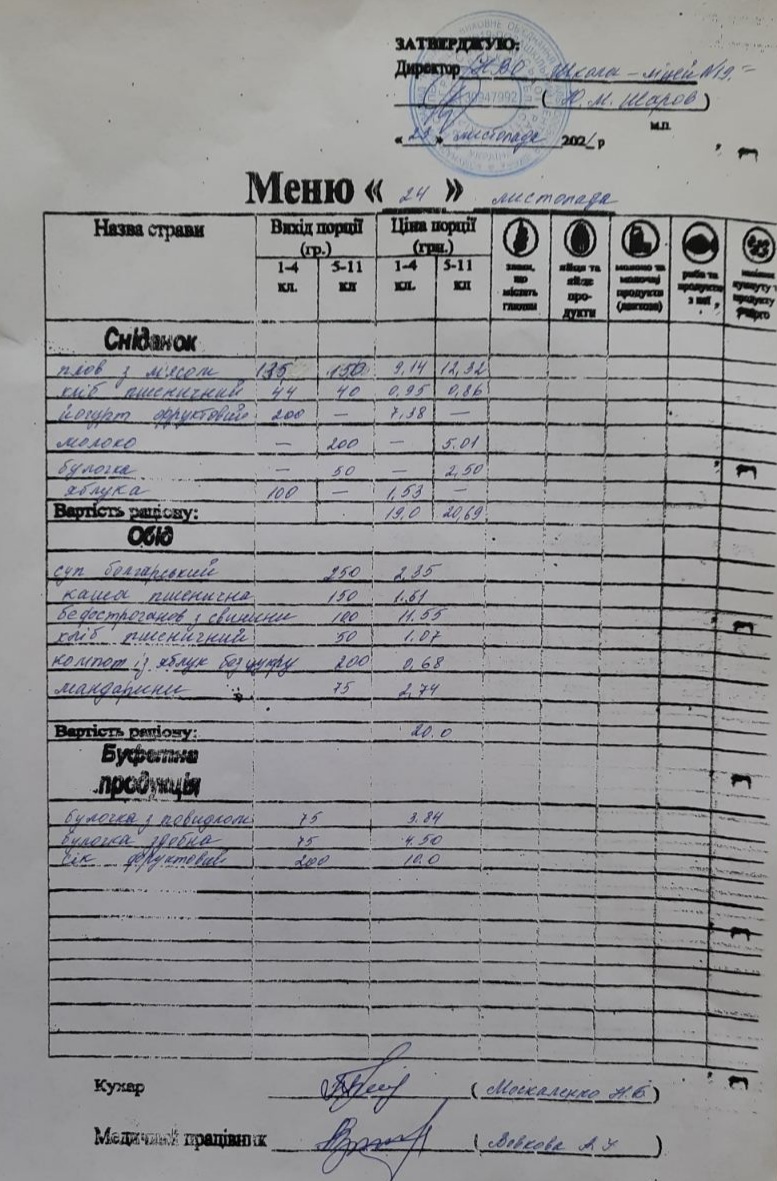 ЗАТВЕРДЖУЮ:
Директор НВО Школа – ліцей №19
( Ю.М. Шаров )
м.п.
« 23 » листопада 2021 р
Меню « 24 » листопада
Назва страви Вихід порції (гр.) Ціна порції (грн.)
1-4 кл. 5-11 кл 1-4 кл. 5-11 кл
злаки, що містять глютен яйце та яйце продукти молоко та молочні продукти (лактоза) риба та продукти з неї
Сніданок
плов з м'ясом 135 150 9,14 12,32
хліб пшеничний 44 40 0,95 0,86
йогурт фруктовий 200 — 7,38 —
молоко — 200 — 5.01
булочка — 50 — 2,50
яблука 100 — 1,53 —
Вартість раціону: 19,0 20,69
Обід
суп болгарський 250 2,35
каша пшенична 150 1.61
бефстроганов з свинини 100 11.55
хліб пшеничний 50 1.07
компот із яблук без цукру 200 0,68
мандарини 75 2,74
Вартість раціону: 20.0
Буфетна продукція
булочка з повидлом 75 3.84
булочка здобна 75 4.50
сік фруктовий 200 10.0
Кухар ( Москаленко Н.Б )
Медичний працівник ( Вовкова )